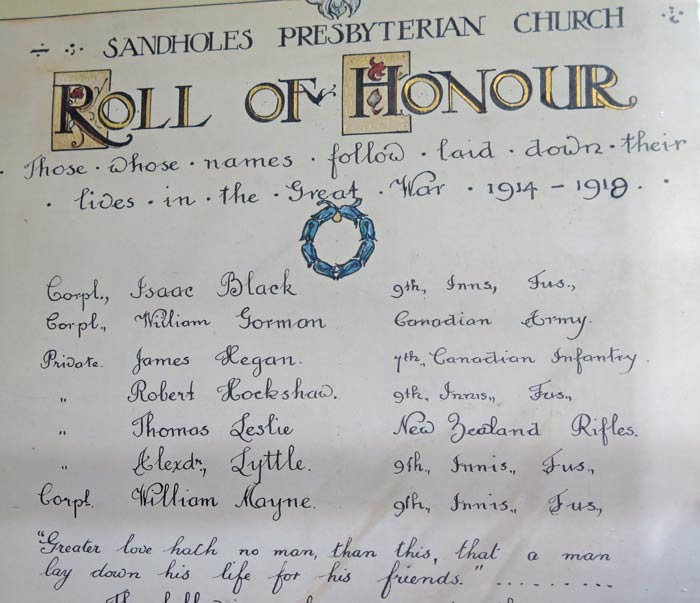 SANDHOLES PRESBYTERIAN CHURCH
ROLL OF HONOUR
Those · whose · names · follow · laid · down · their
· lives · in · the · Great · War · 1914 - 1918 · ·
Corpl., Isaac Black 9th, Inns, Fus.,
Corpl., William Gorman Canadian Army.
Private. James Hegan. 7th, Canadian Infantry.
„ Robert Hockshaw. 9th, Innis., Fus.,
„ Thomas Leslie New Zealand Rifles.
„ Alexdr., Lyttle. 9th, Innis., Fus.,
Corpl. William Mayne. 9th, Innis., Fus.,
"Greater love hath no man, than this, that a man
lay down his life for his friends." ..........